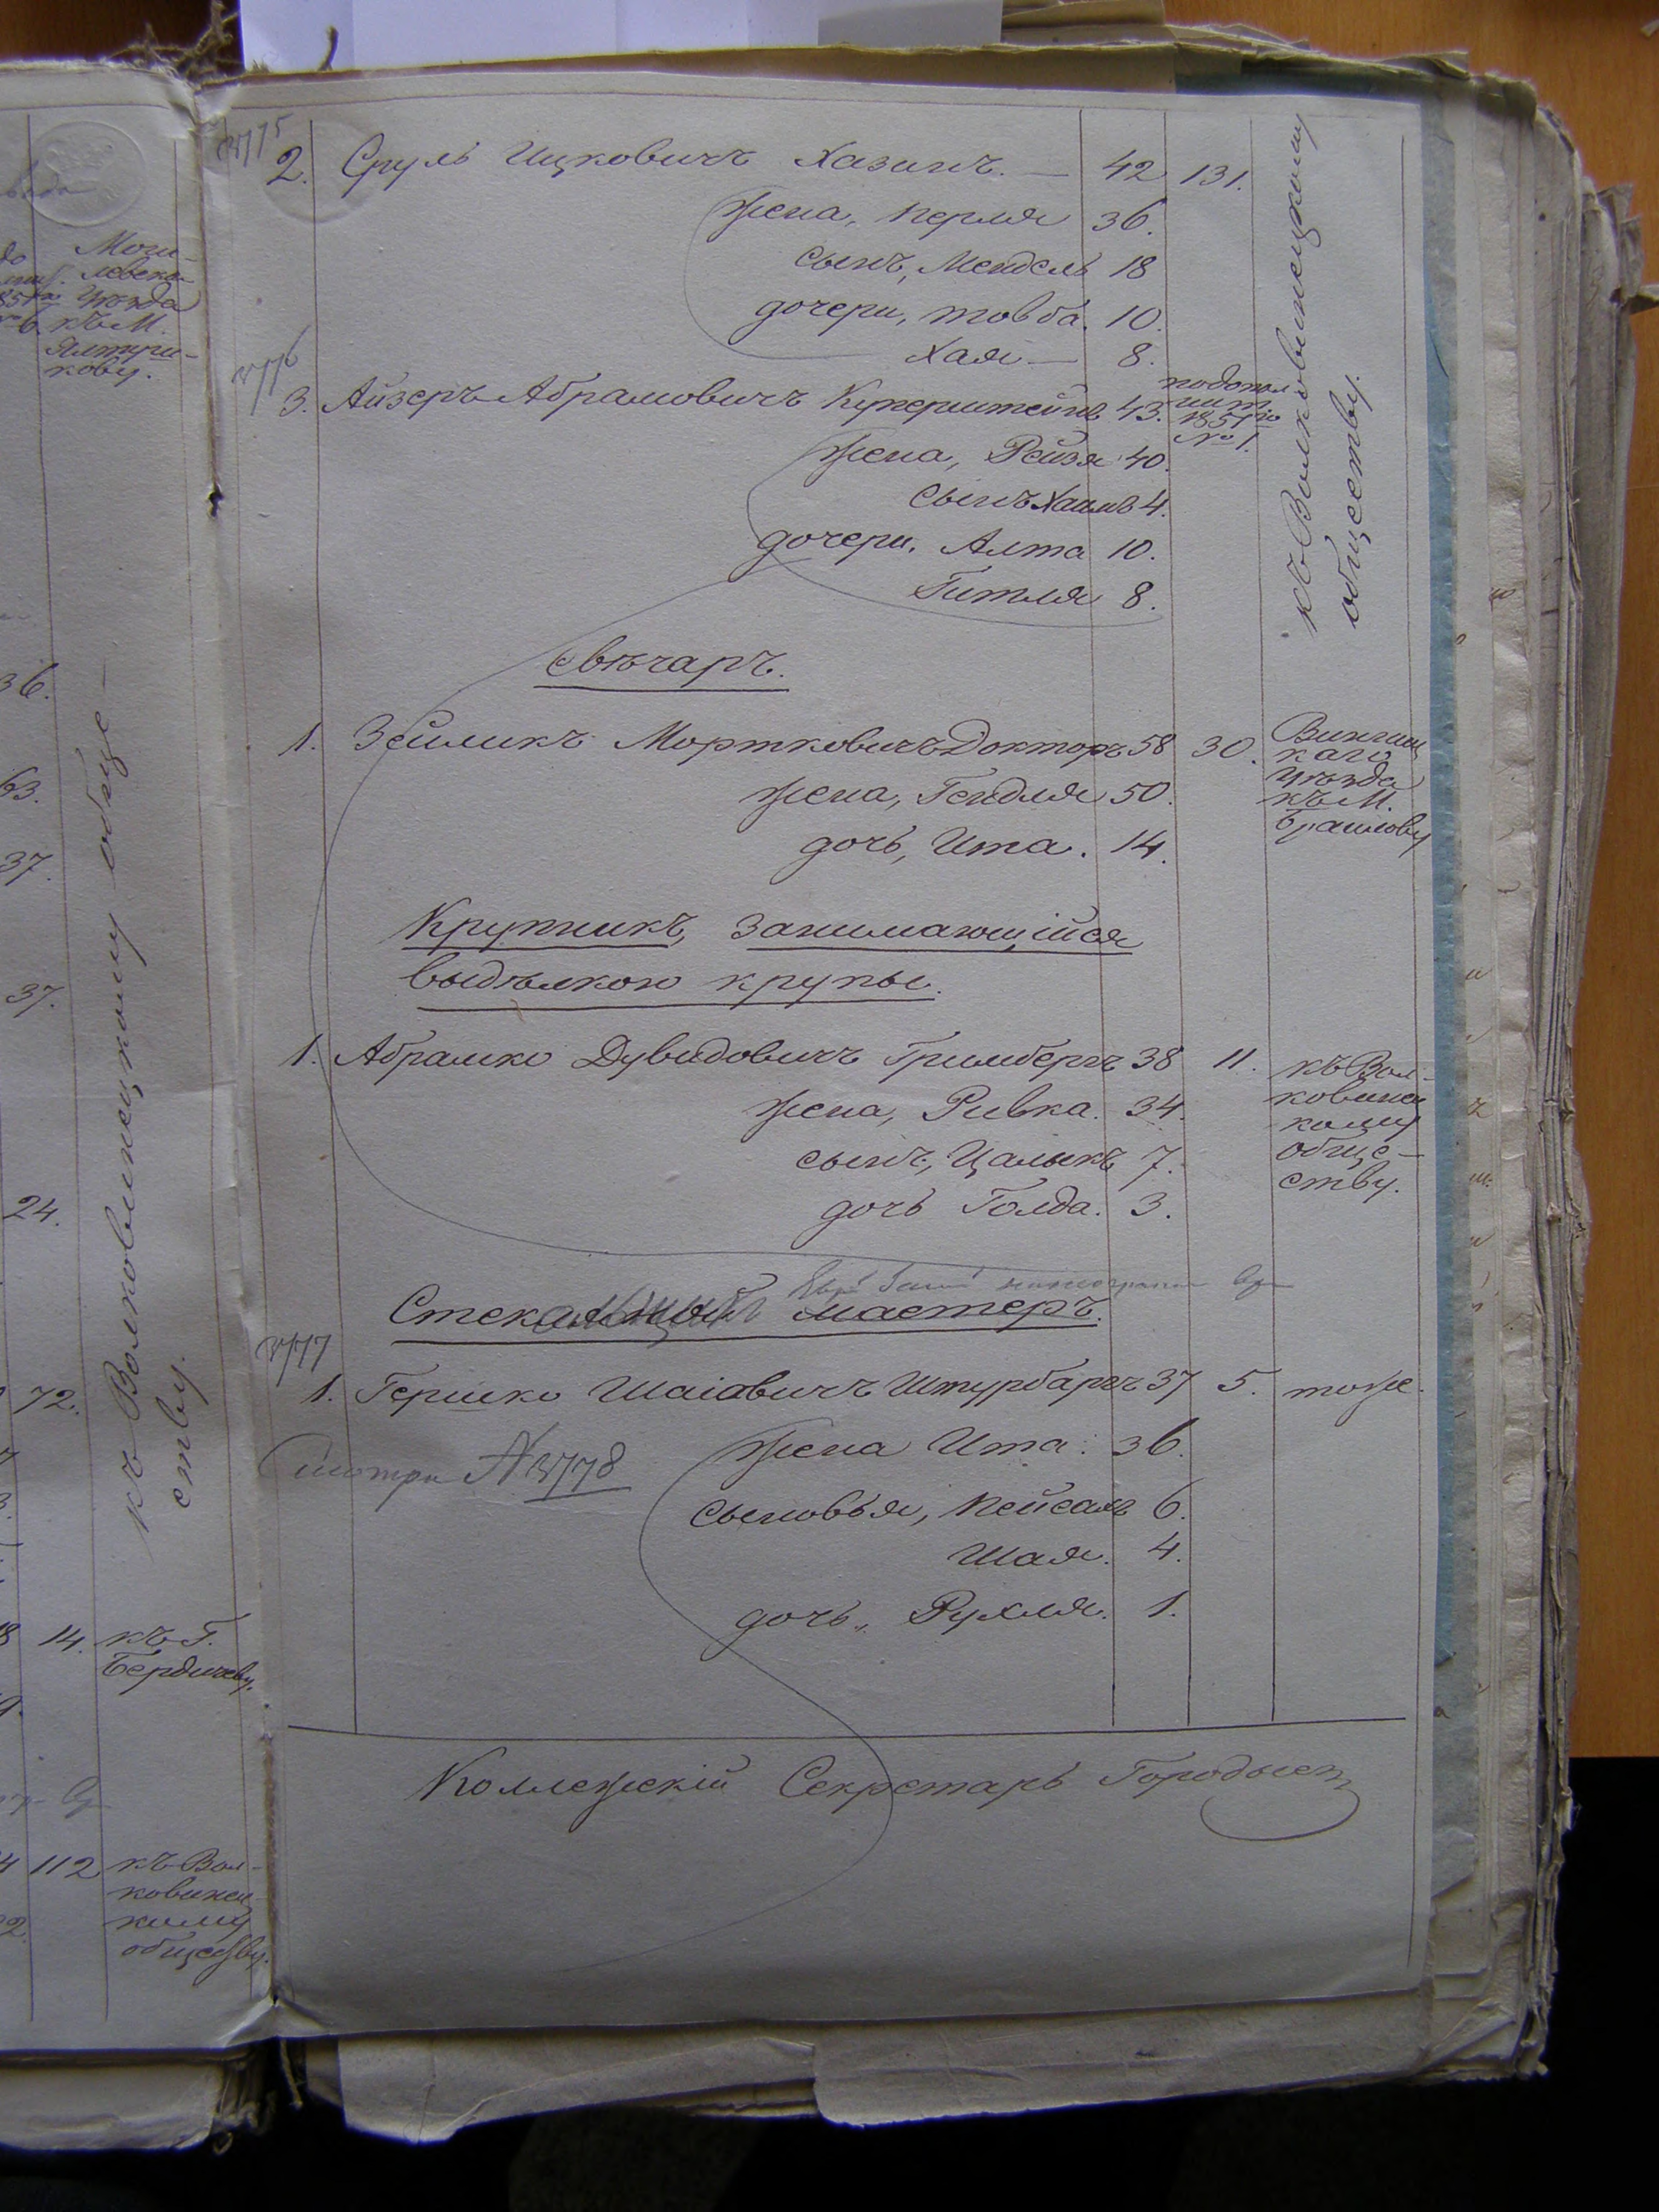 до Моги-
левска
уѣзда
къ М.
Ялтуш-
кову.
36.
63.
37.
37.
24.
72.
къ Волковинецкому обще-
ству.
14. къ Г.
Бердичеву.
112 къ Вол-
ковинец
кому
обществу.
3775
2. Сруль Ицковичъ Хазинъ. — 42 131.
жена, Перля 36.
сынъ, Мендель 18
дочери, Товба. 10.
Хая — 8.
3776
3. Айзеръ Абрамовичъ Куперштейнъ 43. по допол
1851 го
№ 1.
жена, Рейзя 40.
сынъ Хаимъ 4.
дочери, Алта 10.
Гитля 8.
къ Волковинецкому
обществу.
Свѣчаръ.
1. Зейликъ Мортковичъ Докторъ 58 30. Винниц
каго
уѣзда
къ М.
Браилову
жена, Гендля 50.
дочь, Ита. 14.
Крупникъ, занимающійся
выдѣлкою крупы.
1. Абрамко Дувидовичъ Гримбергъ 38 11. къ Вол-
ковинец
кому
обще-
ству.
жена, Ривка. 34.
сынъ, Цалыкъ 7.
дочь Голда. 3.
мастеръ.
3777
1. Гершко Шаіовичъ Штурбаргъ 37 5. тоже.
жена Ита. 36.
Смотри № 3778
сыновья, Пейсахъ 6.
Шая. 4.
дочь, Рухля. 1.
Коллежскій Секретарь